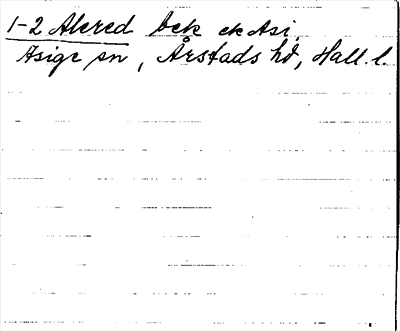 1-2 Akered bek ek Asi
Asige sn, Årstads hd, Hall. l.